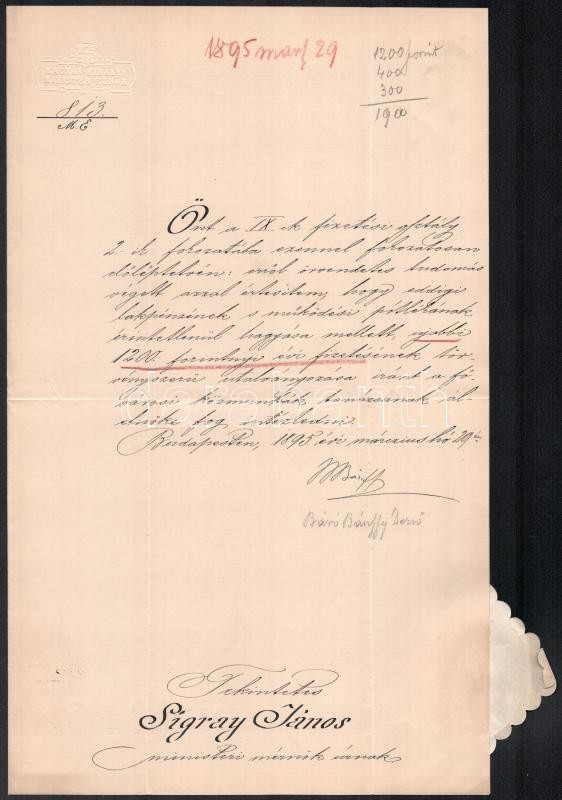 1895 márz 29
1200 forint
400
300
1900
813.
M.E
Önt a IX.-ik fizetési osztály
2.-ik fokozatába ezennel fokozatosan
előléptetvén: erről örvendetes tudomás
végett azzal értesítem, hogy eddigi
lakpénzének s működési pótlékának
érintetlenül hagyása mellett, ujabbi
1200. forintnyi évi fizetésének tör-
vényszerű utalványozása iránt a fő-
városi közmunkák tanácsának al-
elnöke fog intézkedni.
Budapesten, 1895 évi márczius hó 29.én
Bánffy
Báró Bánffy Dezső
Tekintetes
Sigray János
ministeri mérnök úrnak
darabanth